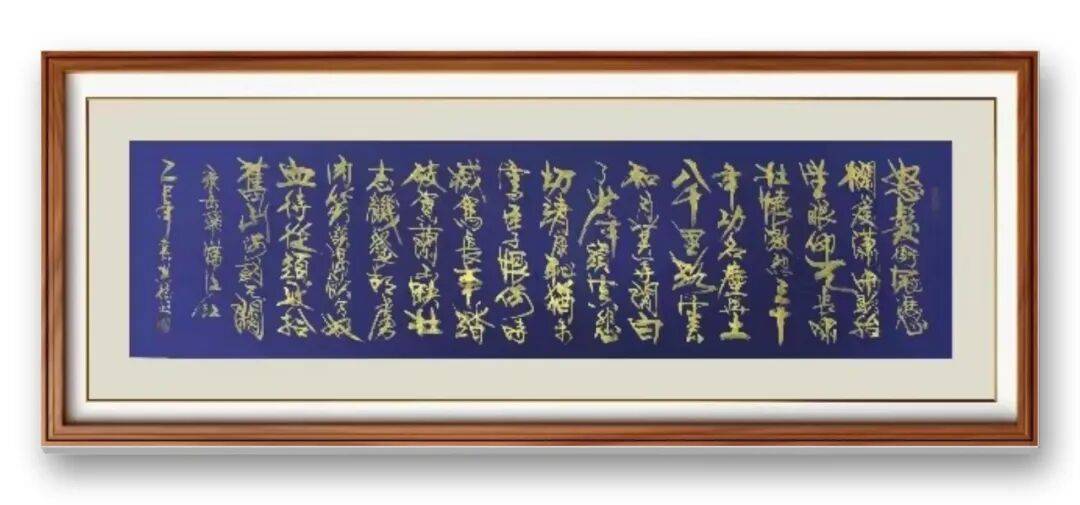 怒髮衝冠憑
欄處瀟瀟雨歇抬
望眼仰天長嘯
壯懷激烈三十
年功名塵與土
八千里路雲
和月莫等閑白
了少年頭空悲
切靖康恥猶未
雪臣子恨何時
滅駕長車踏
破賀蘭山缺壯
志饑餐胡虜
肉笑談渴飲匈奴
血待從頭收拾
舊山河朝天闕
滿江红
乙巳年